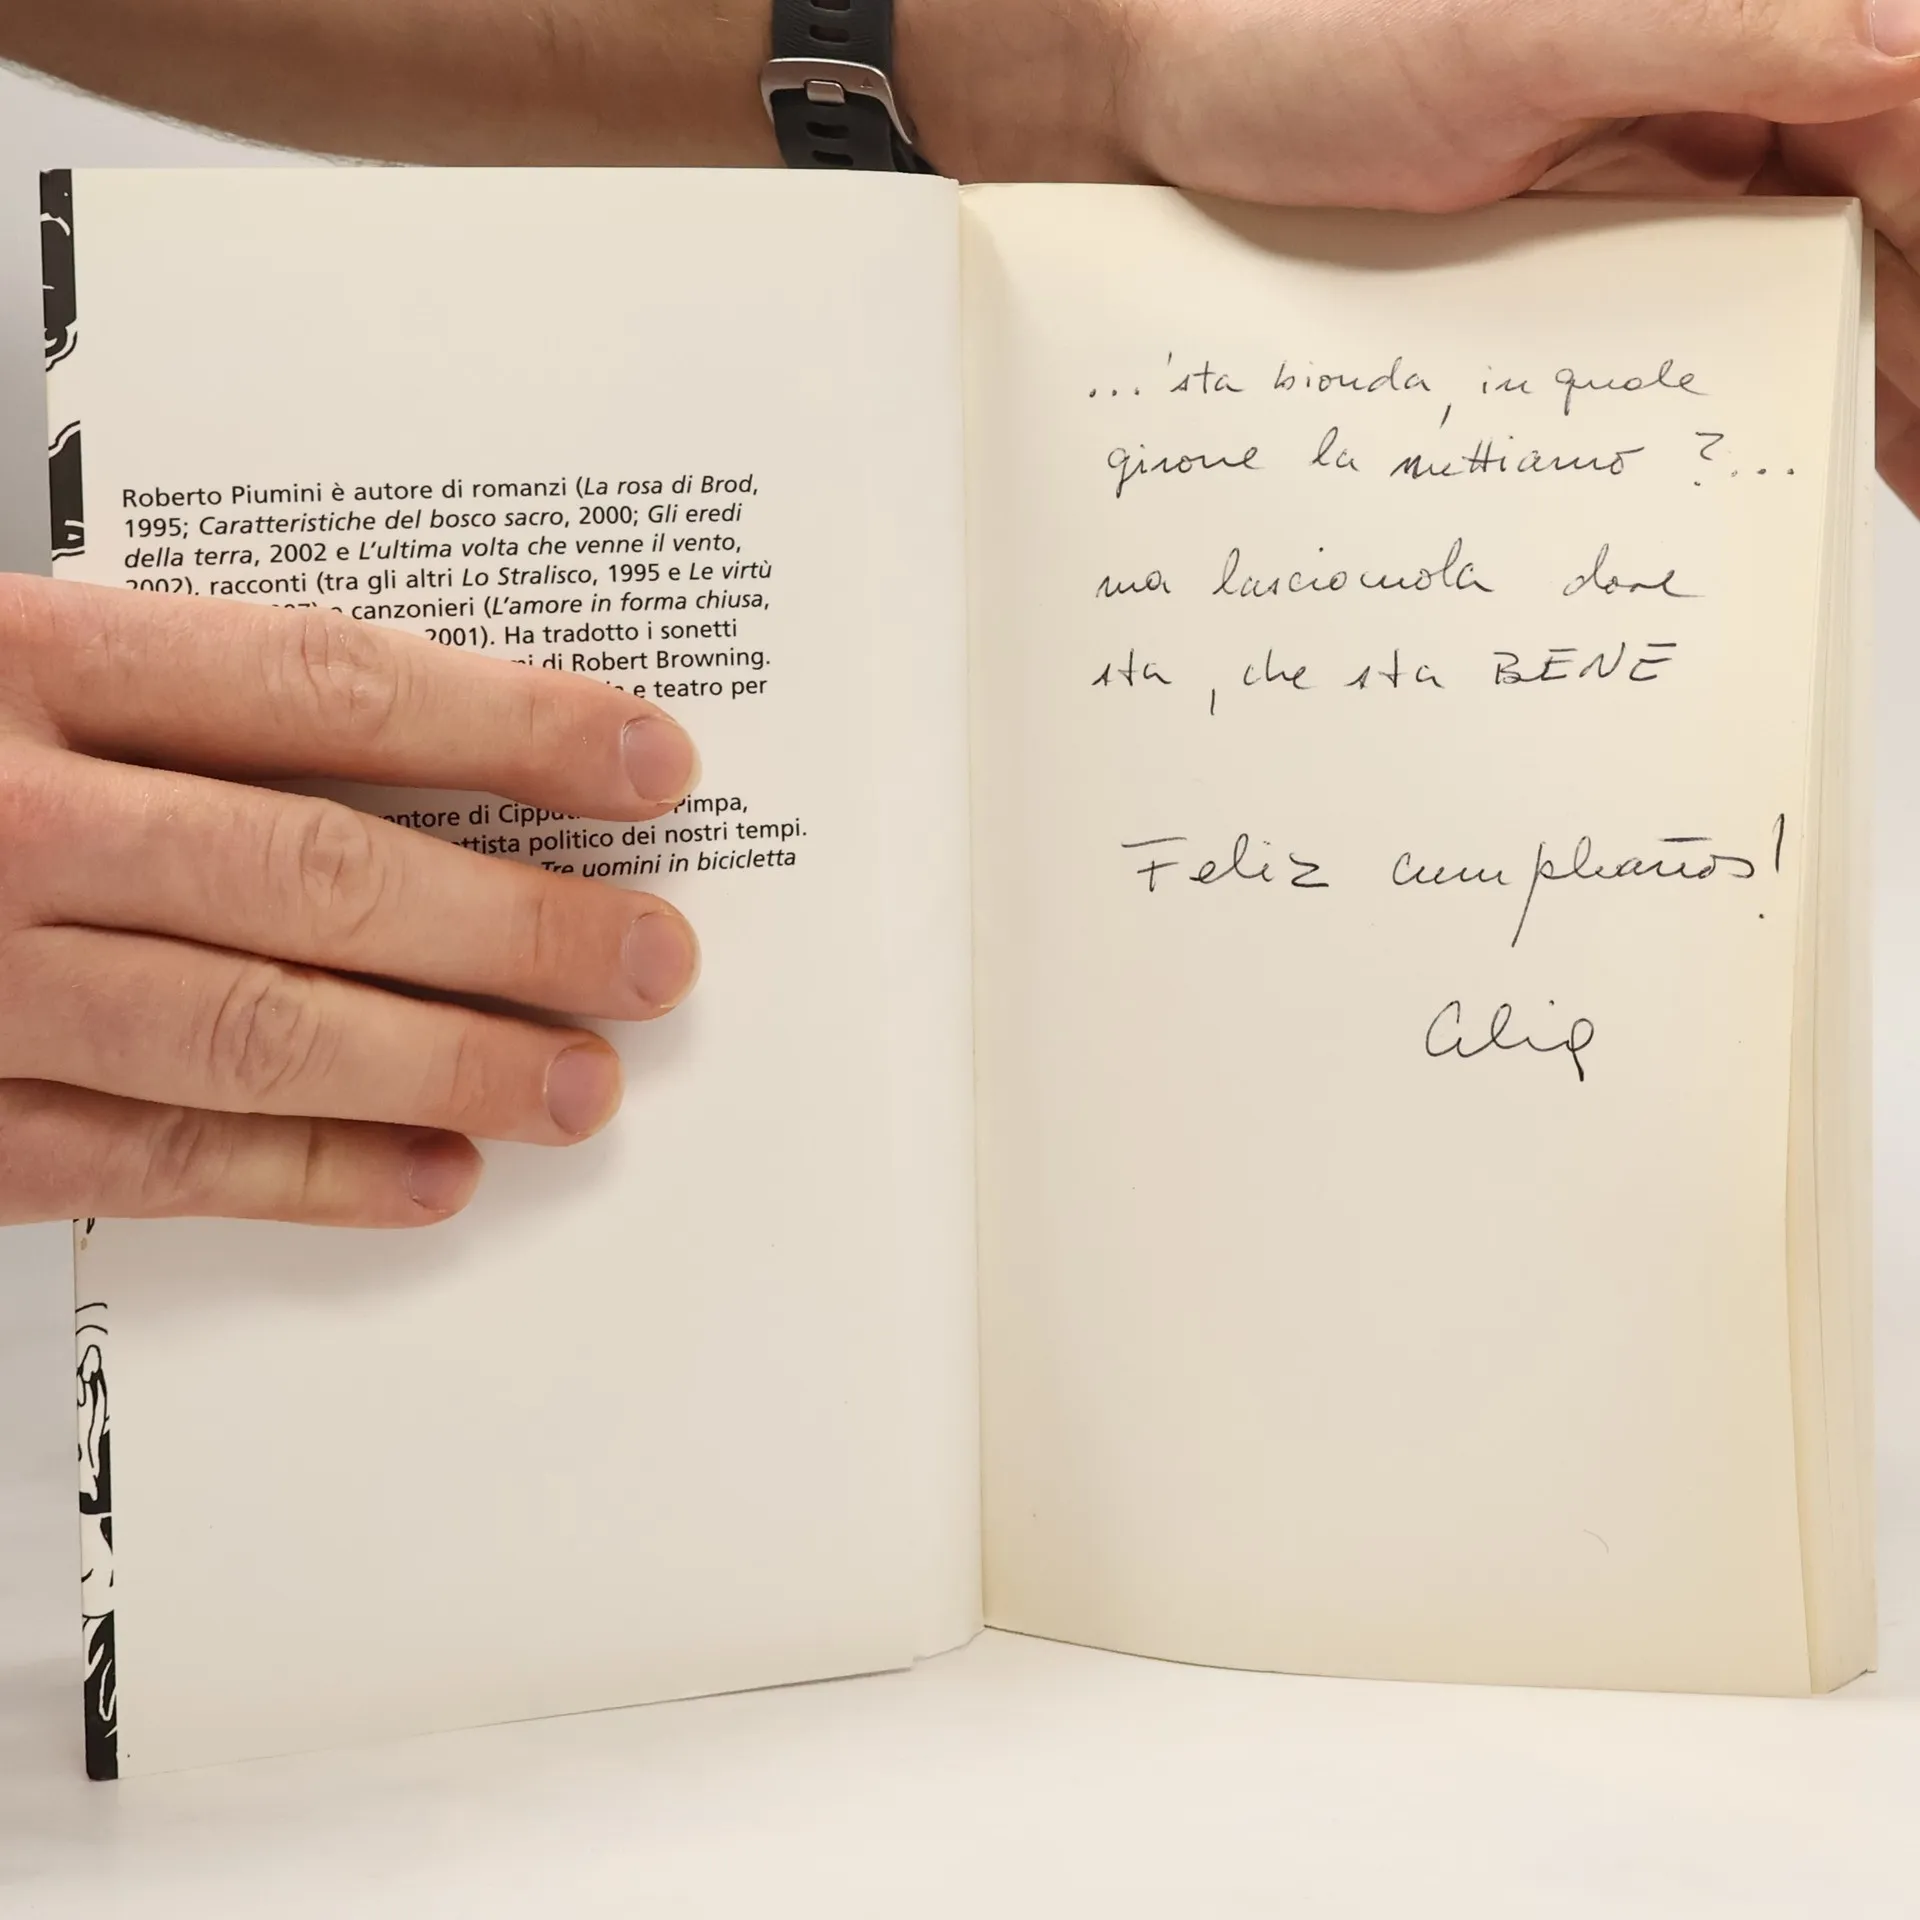 Roberto Piumini è autore di romanzi (La rosa di Brod,
1995; Caratteristiche del bosco sacro, 2000; Gli eredi
della terra, 2002 e L'ultima volta che venne il vento,
2002), racconti (tra gli altri Lo Stralisco, 1995 e Le virtù
canzonieri (L'amore in forma chiusa,
2001). Ha tradotto i sonetti
di Robert Browning.
e teatro per
di Pimpa,
politico dei nostri tempi.
Tre uomini in bicicletta
... 'sta bionda, in quale
girone la mettiamo ?...
ma lasciamola dove
sta, che sta BENE
Feliz cumpleaños!